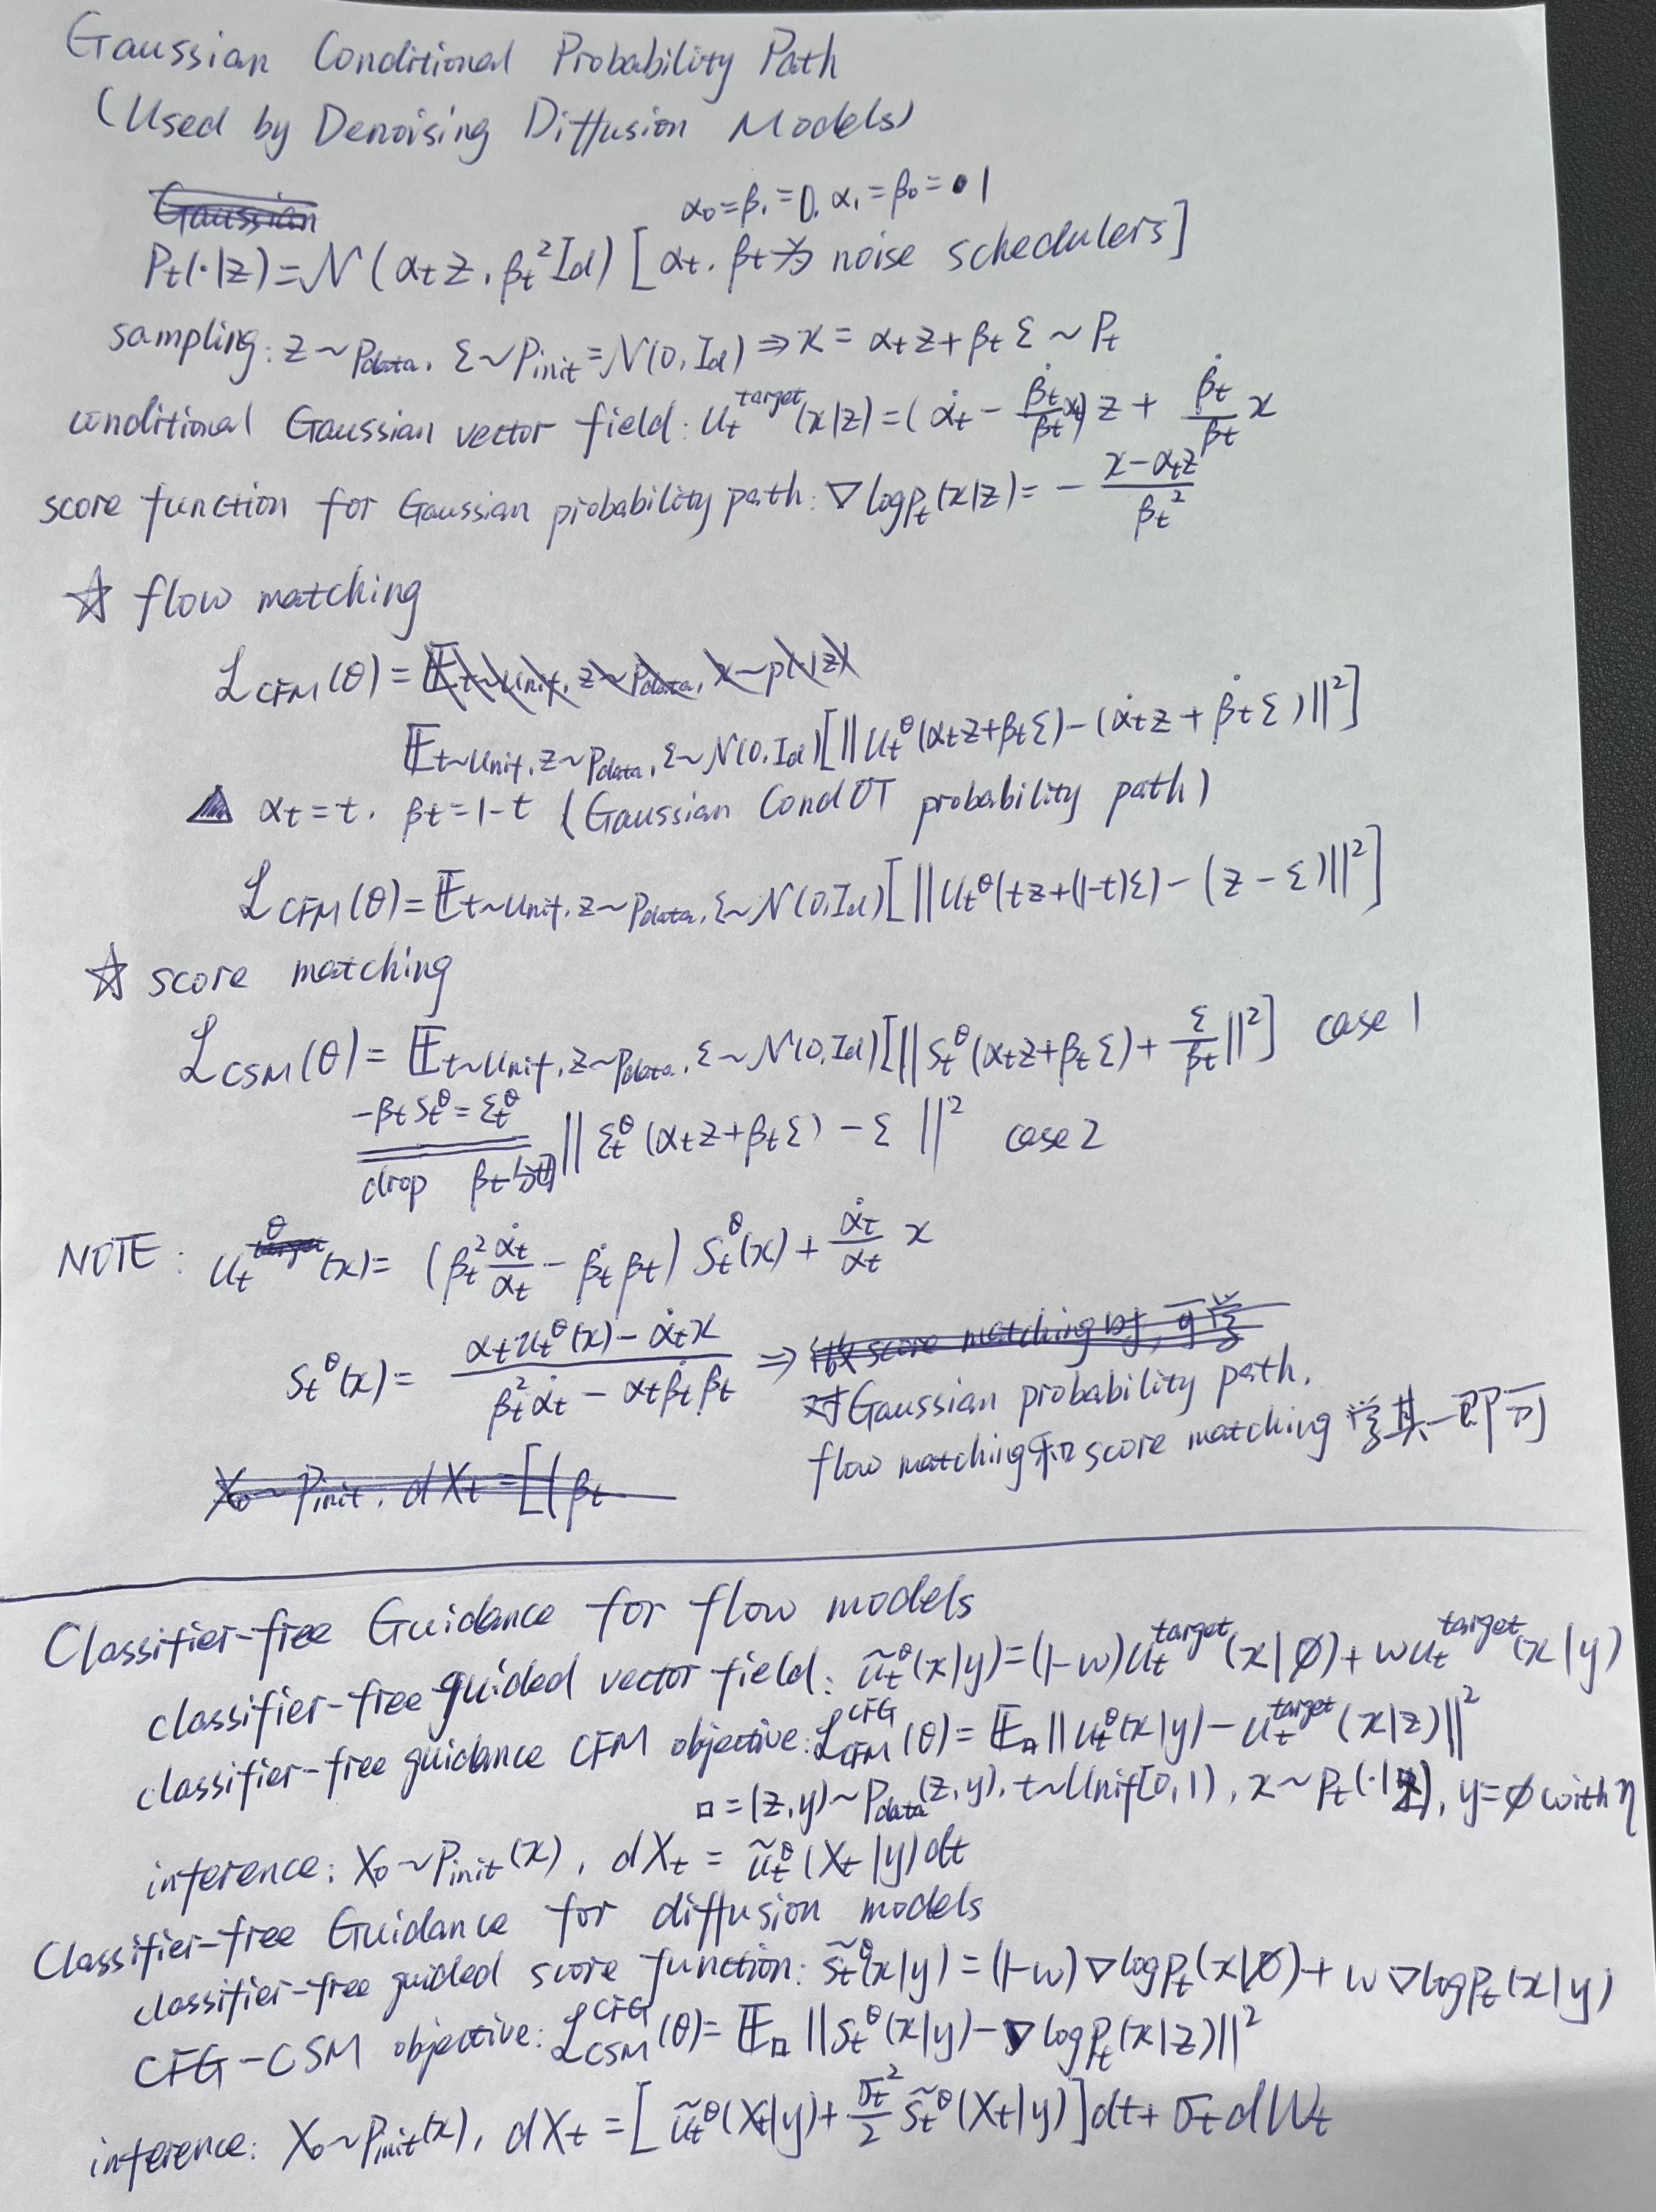 Gaussian Conditional Probability Path
(Used by Denoising Diffusion Models)
Gaussian
α₀=β₁=0, α₁=β₀=1
Pₜ(·|z)=𝒩(αₜz, βₜ²Id) [αₜ, βₜ为 noise schedulers]
sampling: z~Pdata, ε~Pinit=𝒩(0,Id)⇒x=αₜz+βₜε~Pₜ
conditional Gaussian vector field: uₜ^target(x|z)=(α̇ₜ-(β̇ₜ/βₜ)αₜ)z+(β̇ₜ/βₜ)x
score function for Gaussian probability path: ∇logpₜ(x|z)=-(x-αₜz)/βₜ²
☆ flow matching
ℒ_CFM(θ)=𝔼t~Unif, z~Pdata, x~p(·|z)
𝔼t~Unif, z~Pdata, ε~𝒩(0,Id)[||uₜ^θ(αₜz+βₜε)-(α̇ₜz+β̇ₜε)||²]
▲ αₜ=t, βₜ=1-t (Gaussian CondOT probability path)
ℒ_CFM(θ)=𝔼t~Unif, z~Pdata, ε~𝒩(0,Id)[||uₜ^θ(tz+(1-t)ε)-(z-ε)||²]
☆ score matching
ℒ_CSM(θ)=𝔼t~Unif, z~Pdata, ε~𝒩(0,Id)[||sₜ^θ(αₜz+βₜε)+ε/βₜ||²] case 1
-βₜsₜ^θ=εₜ^θ
drop βₜ ||εₜ^θ(αₜz+βₜε)-ε||² case 2
NOTE: uₜ^θ(x)=(βₜ²(α̇ₜ/αₜ)-β̇ₜβₜ)sₜ^θ(x)+(α̇ₜ/αₜ)x
sₜ^θ(x)=(αₜuₜ^θ(x)-α̇ₜx)/(βₜ²α̇ₜ-αₜβ̇ₜβₜ) ⇒ 做score matching时,可学
对Gaussian probability path,
flow matching和score matching学其一即可
X₀~Pinit, dXₜ=[(βₜ
Classifier-free Guidance for flow models
classifier-free guided vector field: ũₜ^θ(x|y)=(1-w)uₜ^target(x|∅)+wuₜ^target(x|y)
classifier-free guidance CFM objective: ℒ_CFM^CFG(θ)=𝔼□||uₜ^θ(x|y)-uₜ^target(x|z)||²
□=(z,y)~Pdata(z,y), t~Unif[0,1), x~Pₜ(·|z), y=∅ with η
inference: X₀~Pinit(x), dXₜ=ũₜ^θ(Xₜ|y)dt
Classifier-free Guidance for diffusion models
classifier-free guided score function: s̃ₜ^θ(x|y)=(1-w)∇logpₜ(x|∅)+w∇logpₜ(x|y)
CFG-CSM objective: ℒ_CSM^CFG(θ)=𝔼□||sₜ^θ(x|y)-∇logpₜ(x|z)||²
inference: X₀~Pinit(x), dXₜ=[ũₜ^θ(Xₜ|y)+(σₜ²/2)s̃ₜ^θ(Xₜ|y)]dt+σₜdWₜ